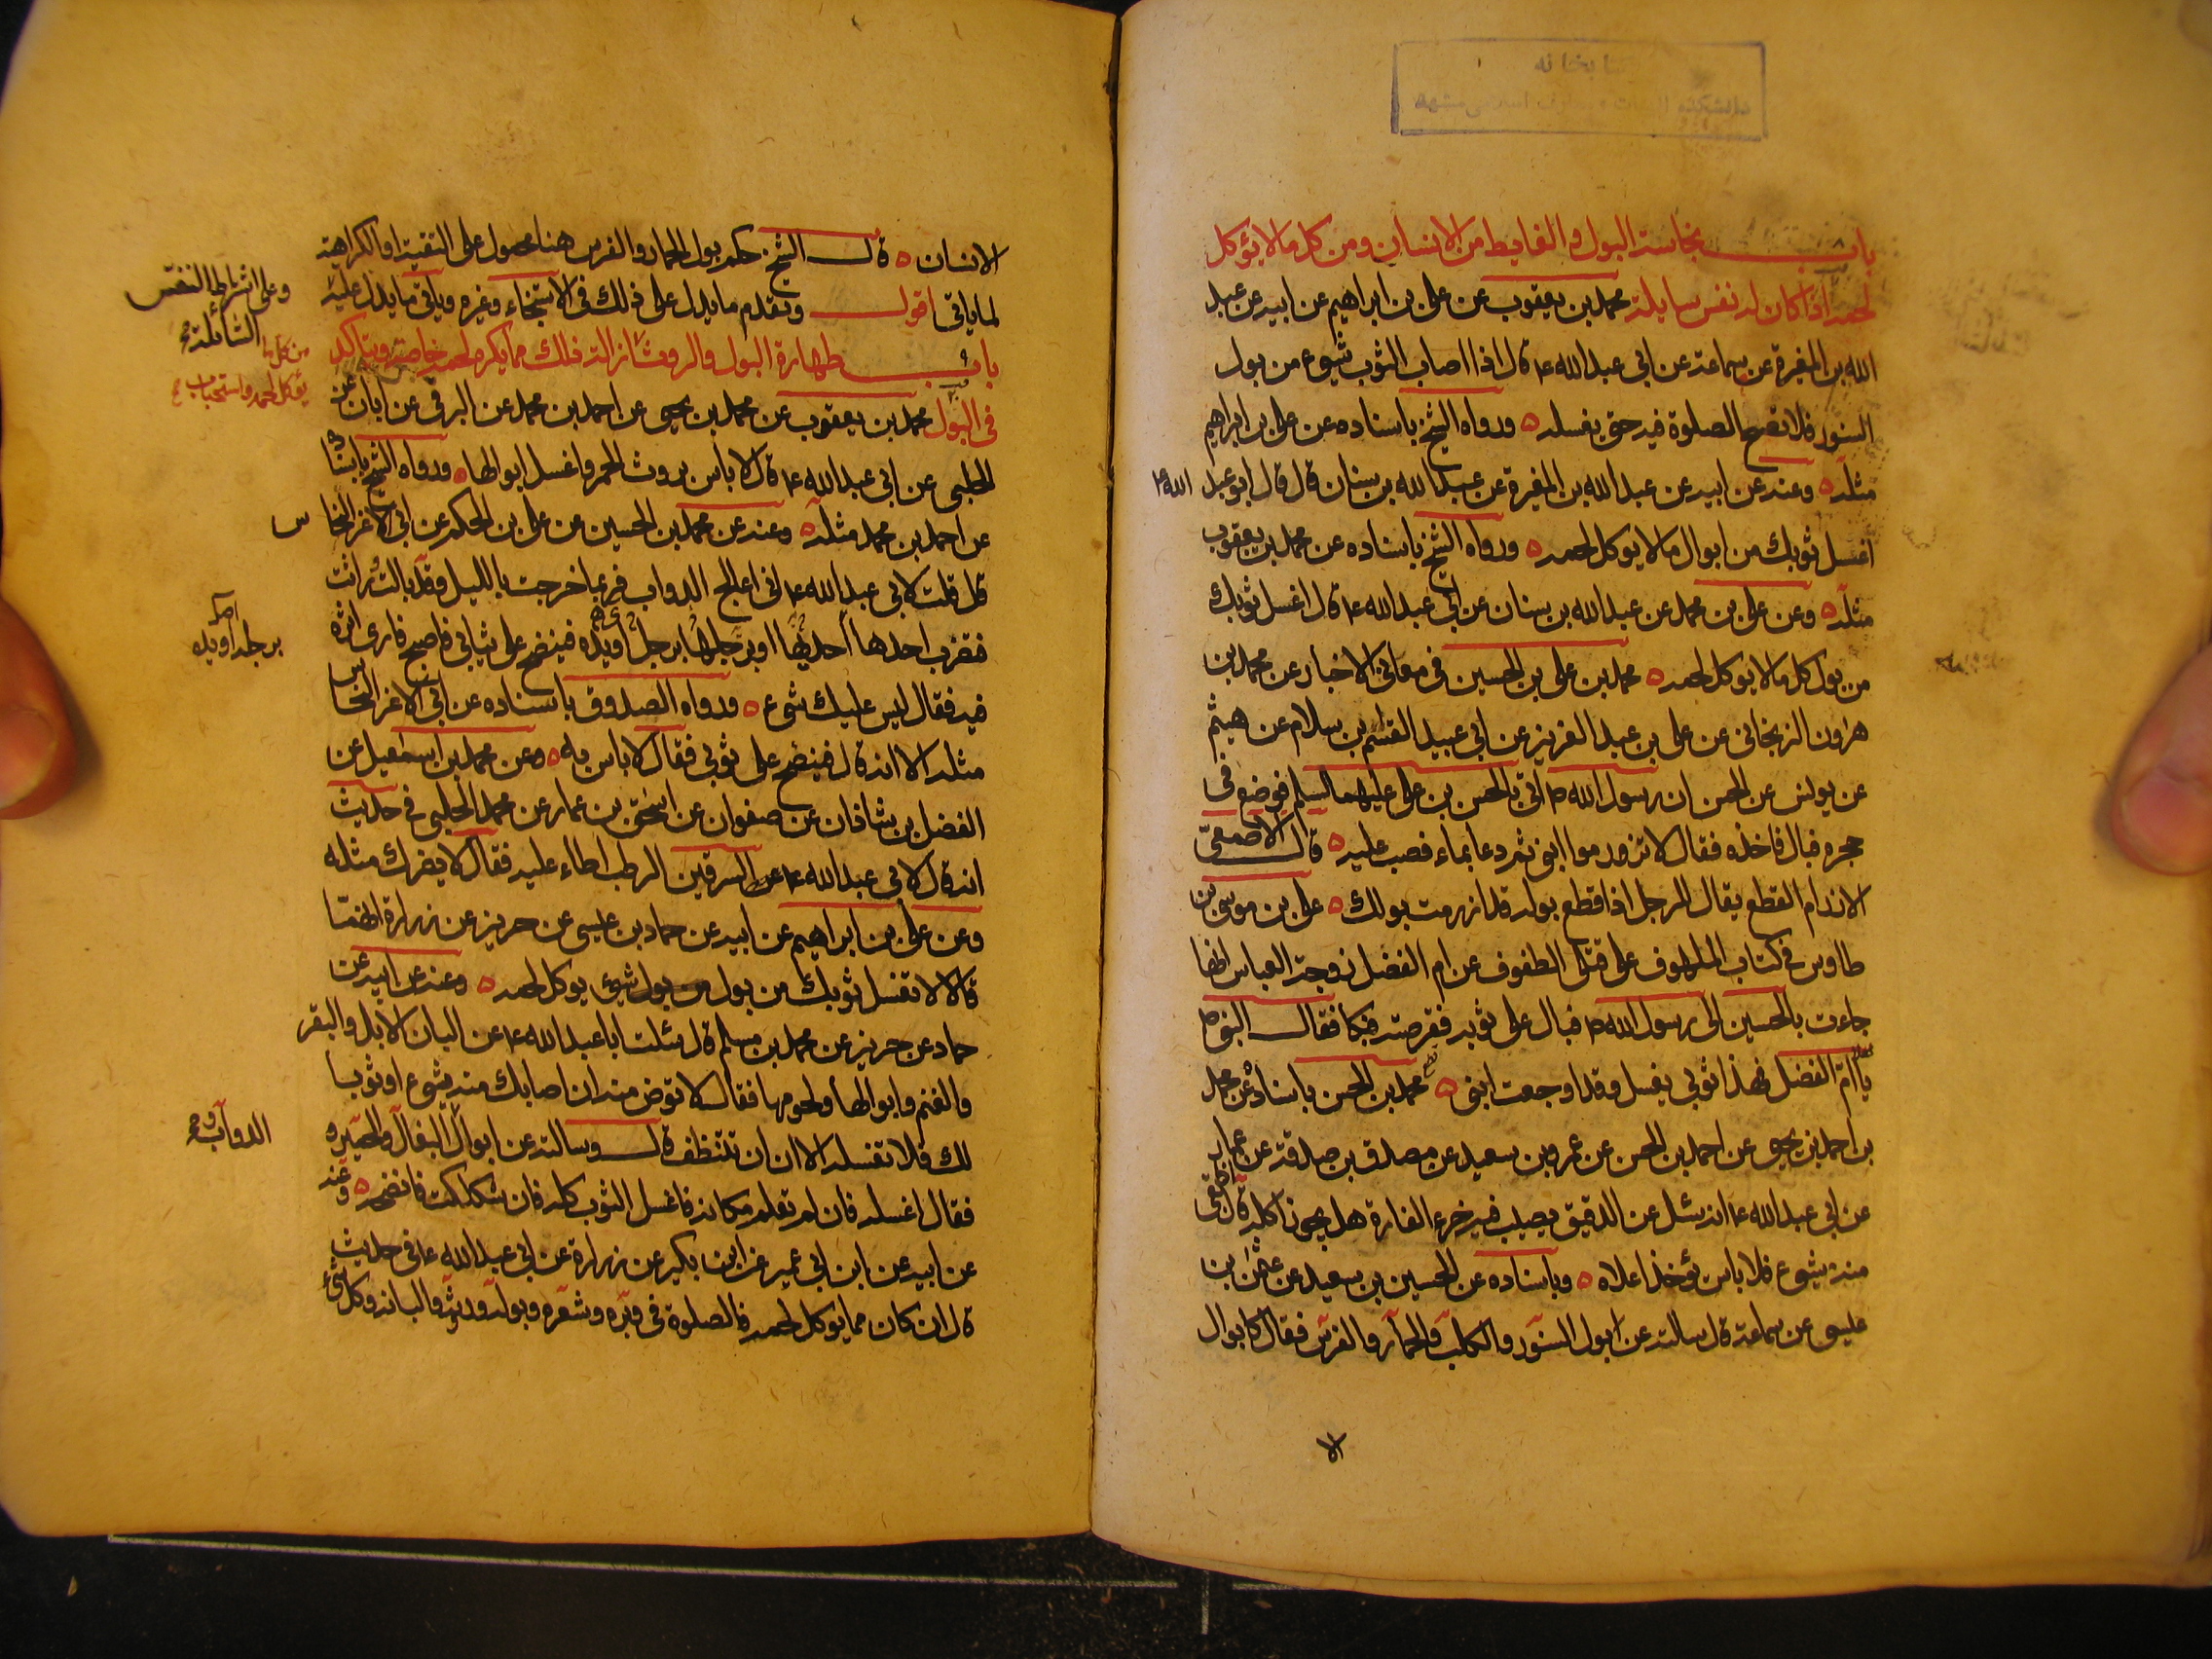 باب نجاسة البول والغايط من الانسان ومن كل ما لا يؤكل
لحمه اذا كان له نفس سايلة محمد بن يعقوب عن على بن ابراهيم عن ابيه عن عبد
الله بن المغيرة عن سماعة عن ابى عبد الله ع قال اذا اصاب الثوب شىء من بول
السنور فلا تصح الصلوة فيه حتى يغسله ورواه الشيخ باسناده عن على بن ابراهيم
مثله وعنه عن ابيه عن عبد الله بن المغيرة عن عبد الله بن سنان قال قال ابو عبد الله ع
اغسل ثوبك من ابوال ما لا يوكل لحمه ورواه الشيخ باسناده عن محمد بن يعقوب
مثله وعن على بن محمد عن عبد الله بن سنان عن ابى عبد الله ع قال اغسل ثوبك
من بول كل ما لا يوكل لحمه محمد بن على بن الحسين فى معانى الاخبار عن محمد بن
هرون الزنجانى عن على بن عبد العزيز عن ابى عبيد القسم بن سلام عن هيثم
عن يونس عن الحسن ان رسول الله ص اتى بالحسن بن على عليهما السلم فوضع فى
حجره فبال فاخذه فقال لا تزرموا ابنى ثم دعا بماء فصب عليه قال الاصمعى
الازرام القطع يقال للرجل اذا قطع بوله قد ازرمت بولك على بن موسى بن
طاوس فى كتاب الملهوف على قتلى الطفوف عن ام الفضل زوجة العباس انها
جاءت بالحسين الى رسول الله ص فبال على ثوبه فقرصته فبكا فقال النبى ص
مهلا يا ام الفضل فهذا ثوبى يغسل وقد اوجعت ابنى محمد بن الحسن باسناده عن محمد
بن احمد بن يحيى عن احمد بن الحسن عن عمرو بن سعيد عن مصدق بن صدقة عن عمار
عن ابى عبد الله ع انه سئل عن الدقيق يصيب فيه خرء الفارة هل يجوز اكله قال اذا بقى
منه شىء فلا باس يؤخذ اعلاه وباسناده عن الحسين بن سعيد عن عثمن بن
عيسى عن سماعة قال سالته عن ابوال السنور والكلب والحمار والفرس فقال كابوال
الا
الانسان قال الشيخ حكم بول الحمار والفرس هنا محمول على التقية او الكراهية
لما ياتى اقول وتقدم ما يدل على ذلك فى الاستنجاء وغيره وياتى ما يدل عليه
وعلى اشتراط النفس السائلة
باب طهارة البول والروث ازالة ذلك مما يكره لحمه خاصة ويتاكد
من كل ما يؤكل لحمه واستحباب
فى البول محمد بن يعقوب عن محمد بن يحيى عن احمد بن محمد عن البرقى عن ابان عن
الحلبى عن ابى عبد الله ع قال لا باس بروث الحمر واغسل ابوالها ورواه الشيخ باسناده
عن احمد بن محمد مثله وعنه عن محمد بن الحسين عن على بن الحكم عن ابى الاغر النخاس
قال قلت لابى عبد الله ع انى اعالج الدواب فربما خرجت بالليل وقد بالت وراثت
فتضرب احدها برجلها او يده فينضح على ثيابى فاصبح فارى اثره
برجله او يده
فيه فقال ليس عليك شىء ورواه الصدوق باسناده عن ابى الاغر النخاس
مثله الا انه قال فينضح على ثوبى فقال لا باس به وعن محمد بن اسمعيل عن
الفضل بن شاذان عن صفوان عن اسحق بن عمار عن محمد الحلبى فى حديث
انه قال لابى عبد الله ع عن السرقين الرطب اطاء عليه فقال لا يضرك مثله
وعن على بن ابراهيم عن ابيه عن حماد بن عيسى عن حريز عن زرارة انهما
قالا لا تغسل ثوبك من بول شىء يوكل لحمه وعنه عن ابيه عن
حماد عن حريز عن محمد بن مسلم قال سئلت ابا عبد الله ع عن البان الابل والبقر
والغنم وابوالها ولحومها فقال لا توض منه ان اصابك منه شىء او ثوبا
لك فلا تغسله الا ان تتنظف قال وسالته عن ابوال الدواب والبغال والحمير
فقال اغسله فان لم تعلم مكانه فاغسل الثوب كله فان شككت فانضحه وعنه
عن ابيه عن ابن ابى عمير عن ابن بكير عن زرارة عن ابى عبد الله ع فى حديث
قال ان كان مما يوكل لحمه فالصلوة فى وبره وشعره وبوله وروثه والبانه وكل شىء